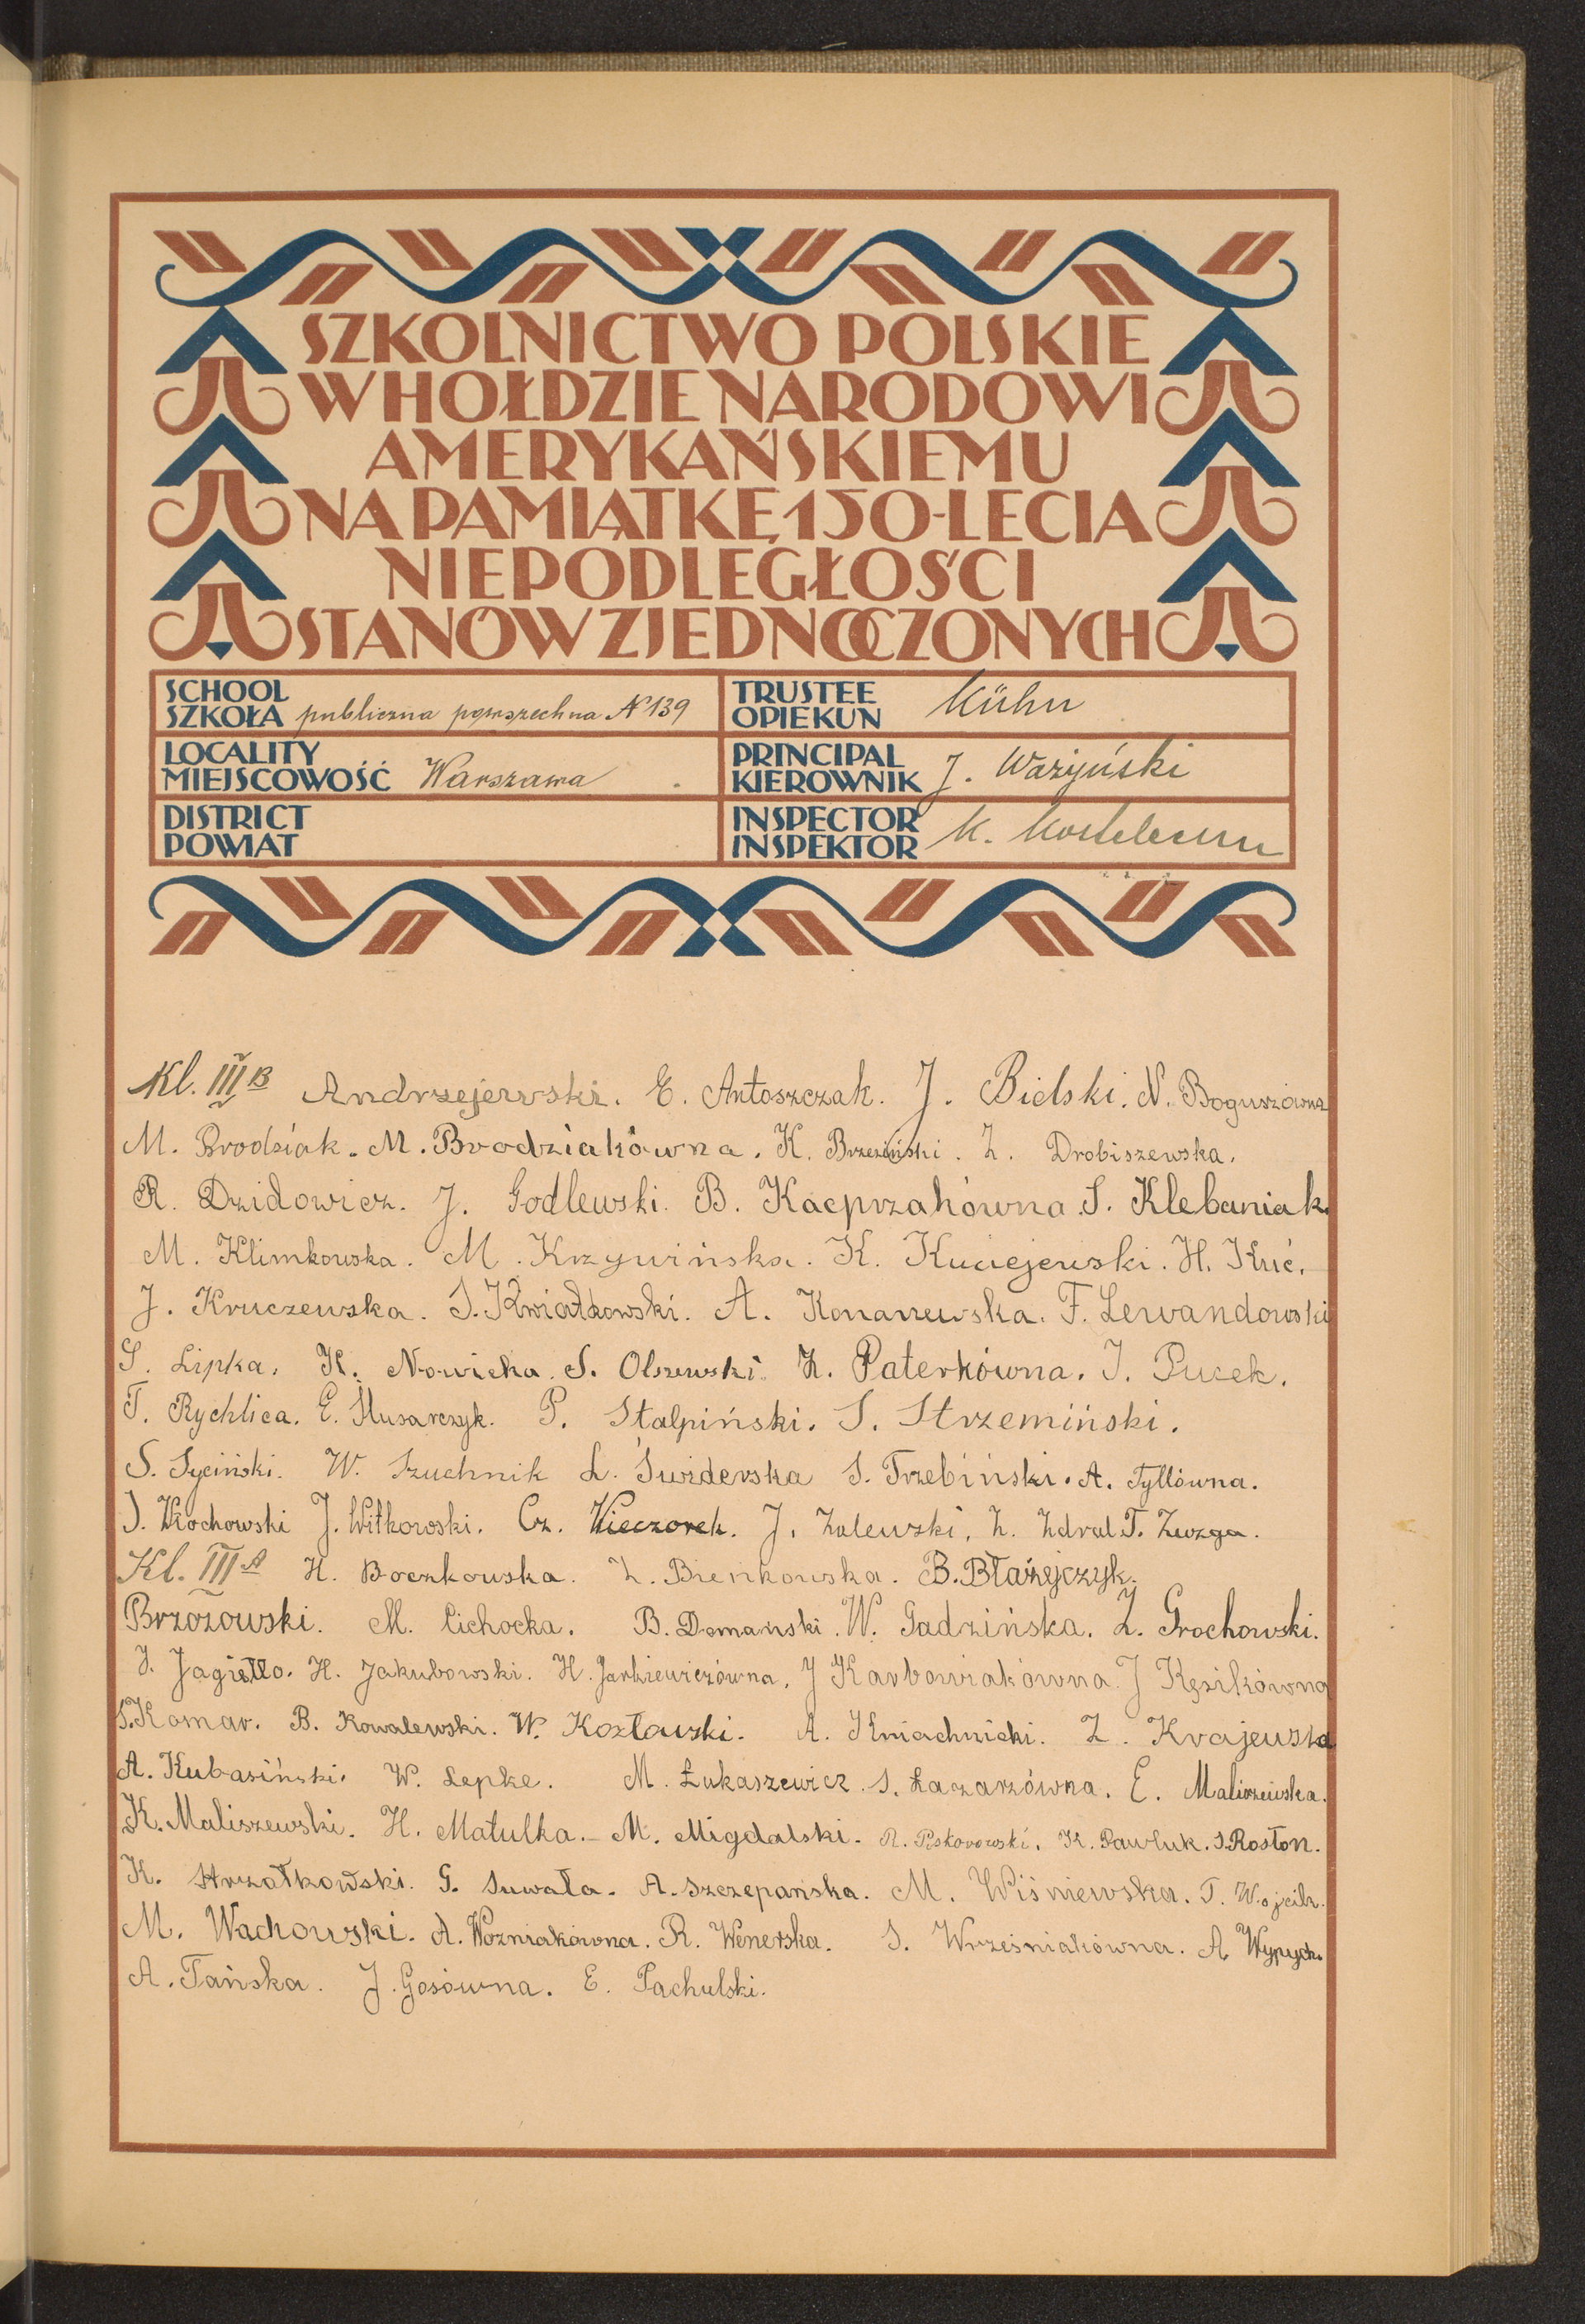 SZKOLNICTWO POLSKIE
W HOŁDZIE NARODOWI
AMERYKAŃSKIEMU
NA PAMIĄTKĘ 150-LECIA
NIEPODLEGŁOŚCI
STANÓW ZJEDNOCZONYCH
SCHOOL
SZKOŁA publiczna powszechna № 139
TRUSTEE
OPIEKUN Kühn
LOCALITY
MIEJSCOWOŚĆ Warszawa
PRINCIPAL
KIEROWNIK J. Ważyński
DISTRICT
POWIAT
INSPECTOR
INSPEKTOR K.
Kl. III B Andrzejewski. E. Antoszczak. J. Bielski. N. Boguszówna
M. Brodziak. M. Brodziakówna. K. Brzeziński. Z. Drobiszewska.
R. Dzidowicz. J. Godlewski. B. Kacprzakówna. S. Klebaniak.
M. Klimkowska. M. Krzywińska. K. Kuciejewski. H. Kuć.
J. Kruczewska. S. Kwiatkowski. A. F. Lewandowski
S. Lipka. K. Nowicka. S. Olszewski. Z. Paterkówna. J. Pucek.
T. Rychlica. E. Ślusarczyk. P. Stalpiński. S. Strzemiński.
S. Syciński. W. Szuchnik Ł. Świderska S. Trzebiński. A. Tyllówna.
J. Włochowski J. Witkowski. Cz. Wieczorek. J. Zalewski. Z. Zdral T. Zwzga.
Kl. III A H. Boczkowska. Z. Bieńkowska. B. Błażejczyk.
Brzozowski. M. Cichocka. B. Domański. W. Gadzińska. Z. Grochowski.
J. Jagiełło. H. Jakubowski. H. Jarkiewiczówna. J Karbowiakówna. J Kęsikówna
S. Komar. B. Kowalewski. W. Kozłowski. A. Kniachnicki. Z. Krajewska
A. Kubasiński. W. Lepke. M. Łukaszewicz. S. Łazarzówna. E. Maliszewska.
K. Maliszewski. H. Matulka. M. Migdalski. R. Piskorowski. K. Pawluk. S. Rosłon.
K. Strzałkowski. G. Suwała. A. Szczepańska. M. Wiśniewska. T. Wojcik.
M. Wachowski. A. Woźniakówna. R. Wenerska. S. Wrześniakówna. A Wypych.
A. Tańska. J. Gosówna. E. Pachulski.